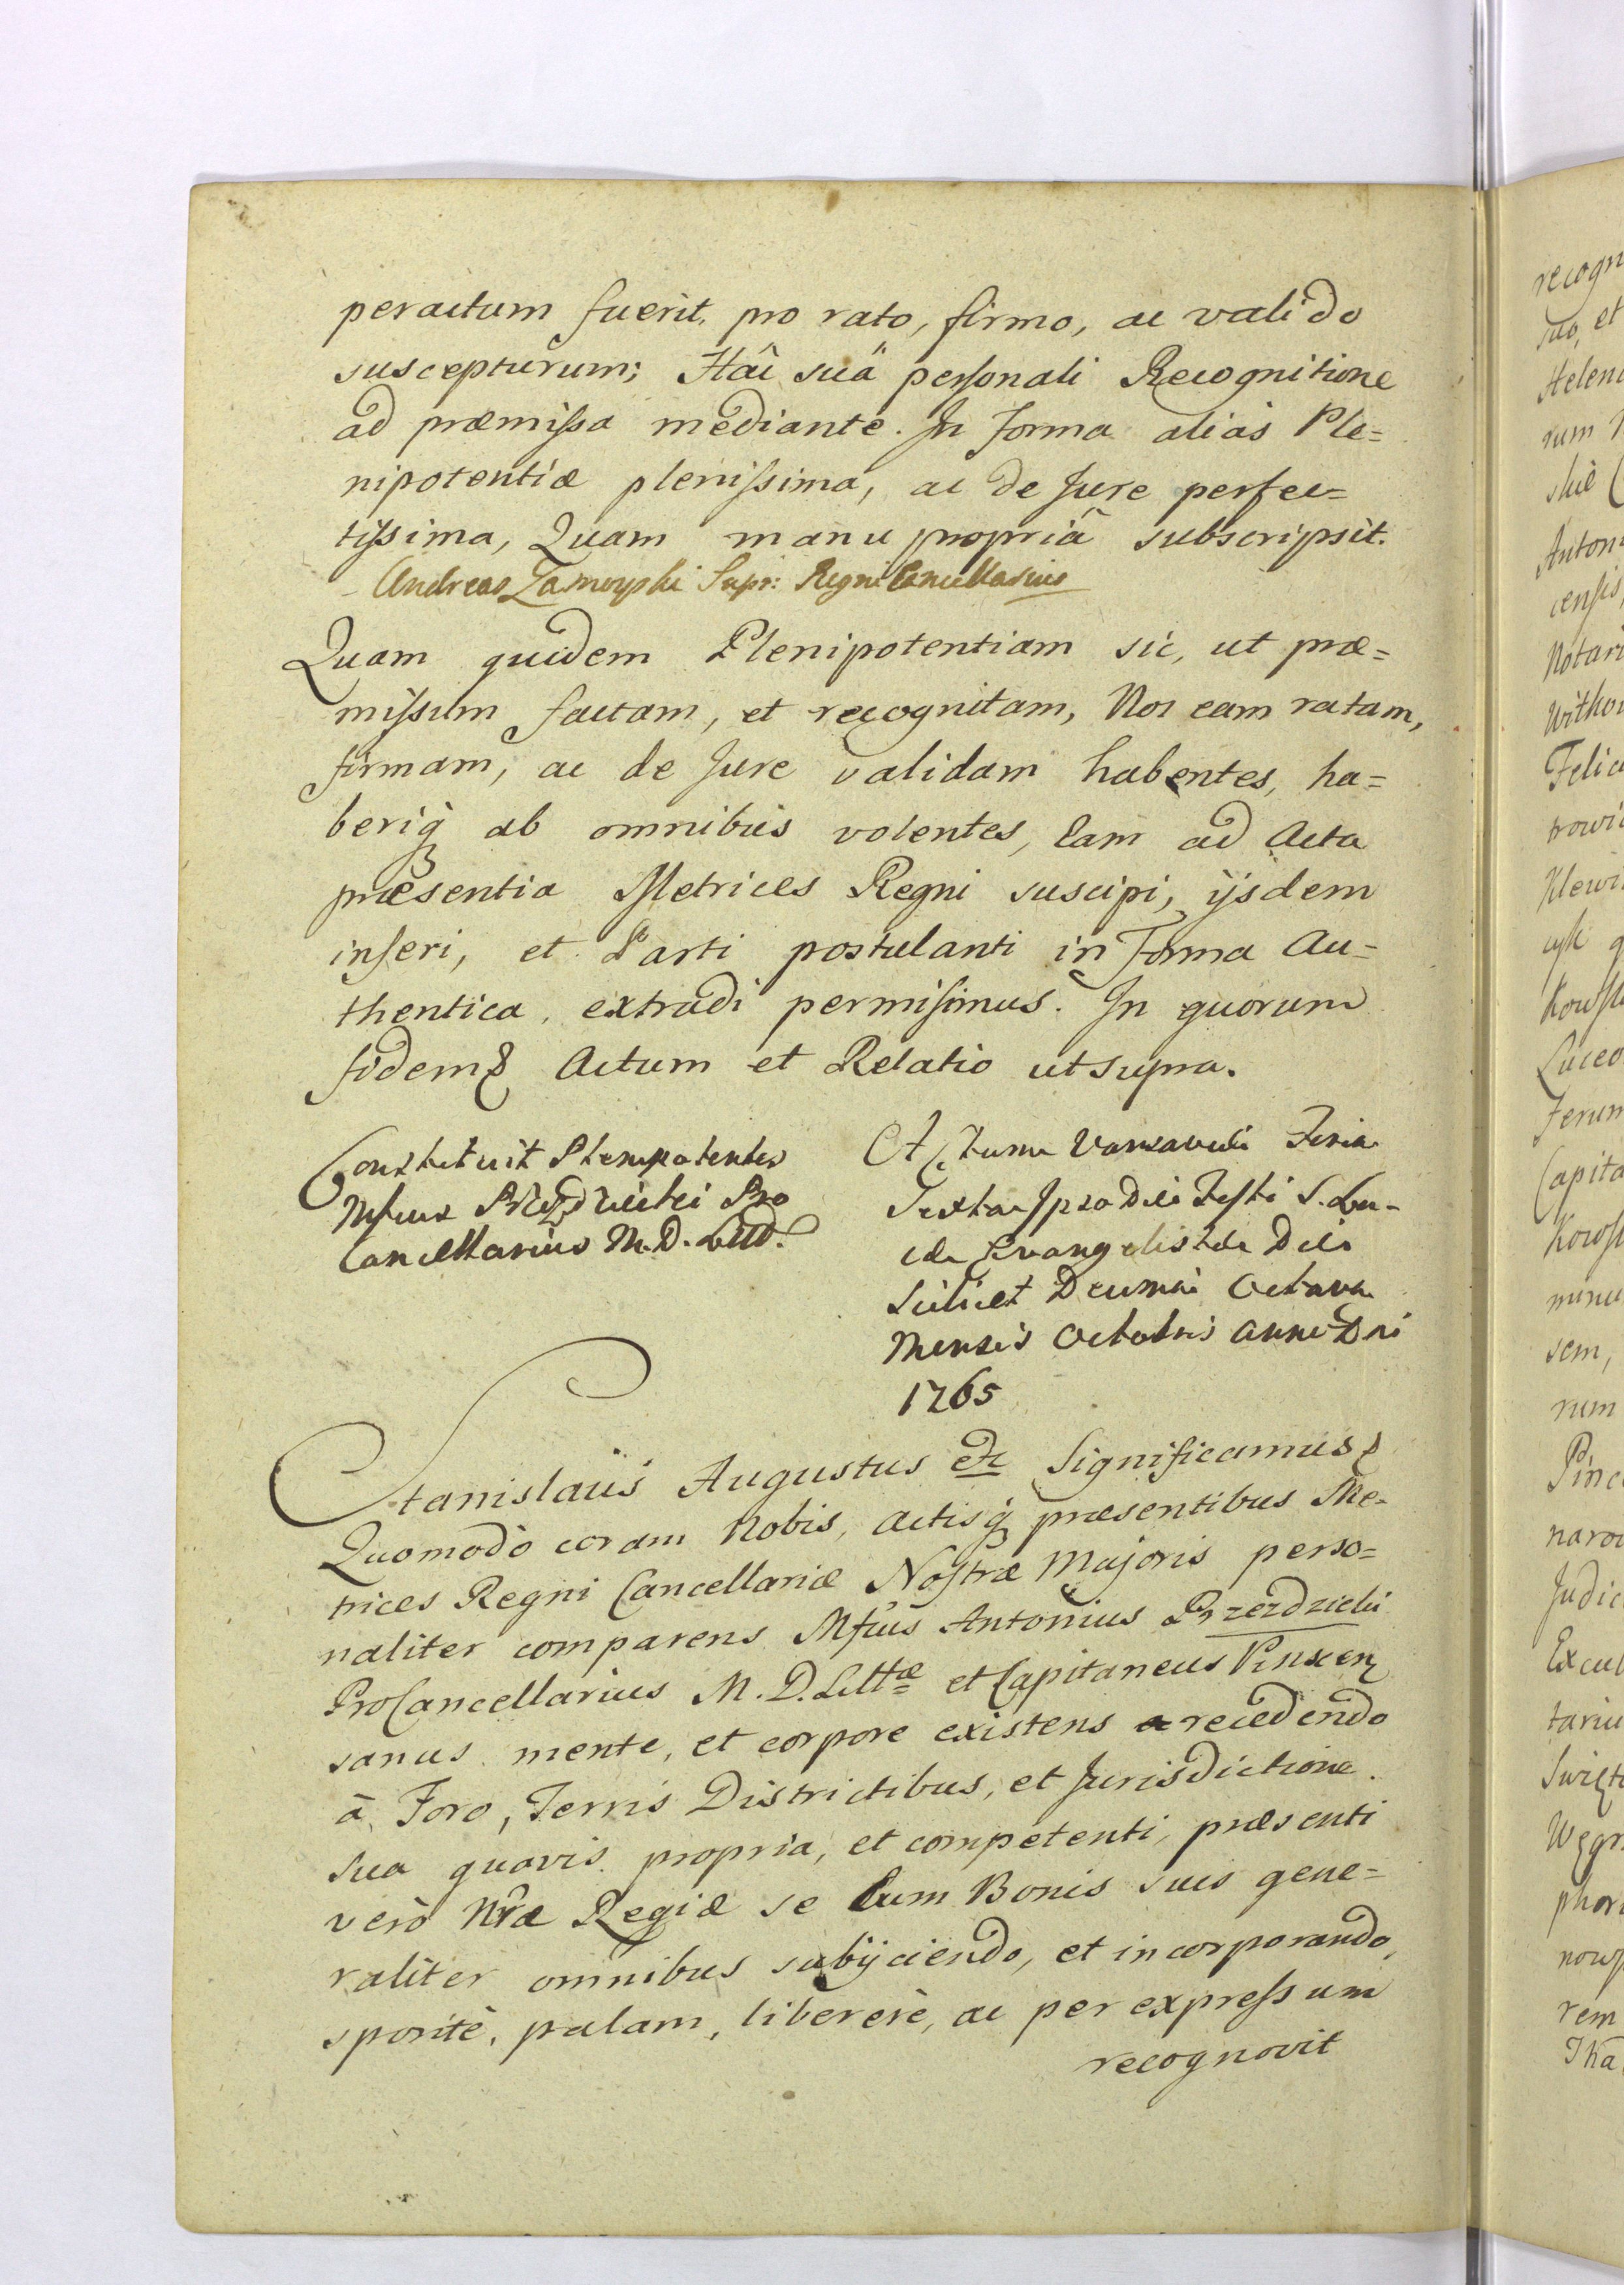 peractum fuerit, pro rato, firmo, ac valido
suscepturum; Hâc suâ personali Recognitione
ad præmissa mediante. In Forma alias Ple=
nipotentiæ plenissima, ac de Jure perfec=
tissima, Quam manu propriâ subscripsit.
Andreas Zamoyski Supr: Regni Cancellarius
Quam quidem Plenipotentiam sic, ut præ=
missum factam, et recognitam, Nos eam ratam,
firmam, ac de Jure validam habentes, ha=
beriq3 ab omnibus volentes, Eam ad Acta
præsentia Metrices Regni suscipi, ijsdem
inseri, et Parti postulanti in Forma Au=
thentica, extradi permisimus. In quorum
fidem Actum et Relatio ut supra.
Constituit Plenipotentes
Mfcus Przezdziecki Pro
Cancellarius M. D. Litt.
Actum Varsaviæ Feria
Sexta Ipso Die Festi S. Lu-
cæ Evangelistæ Die
Scilicet Decima Octava
Mensis Octobris Anno Dni
1765
Stanislaus Augustus etc Significamus
Quomodo coram Nobis, Actisq præsentibus Me-
trices Regni Cancellariæ Nostræ Majoris perso=
naliter comparens Mfcus Antonius Przezdziecki
ProCancellarius M. D. Littæ et Capitaneus Pinscen
sanus mente, et corpore existens recedendo
à Foro, Terris Districtibus, et Jurisdictione
sua quavis propria, et competenti, præsenti
verò Nræ Regiæ se Cum Bonis suis gene=
raliter omnibus subijciendo, et incorporando,
sponte, palam, liberere, ac per expressum
recognovit
recogn
suo, et
Helen
rum
skie
Anton
censis
Notari
Witko
Felic
trowi
Klewi
Luceo
Capita
minu
sem,
rum
Pinc
naro
Judic
Excul
tariu
Swięt
rem